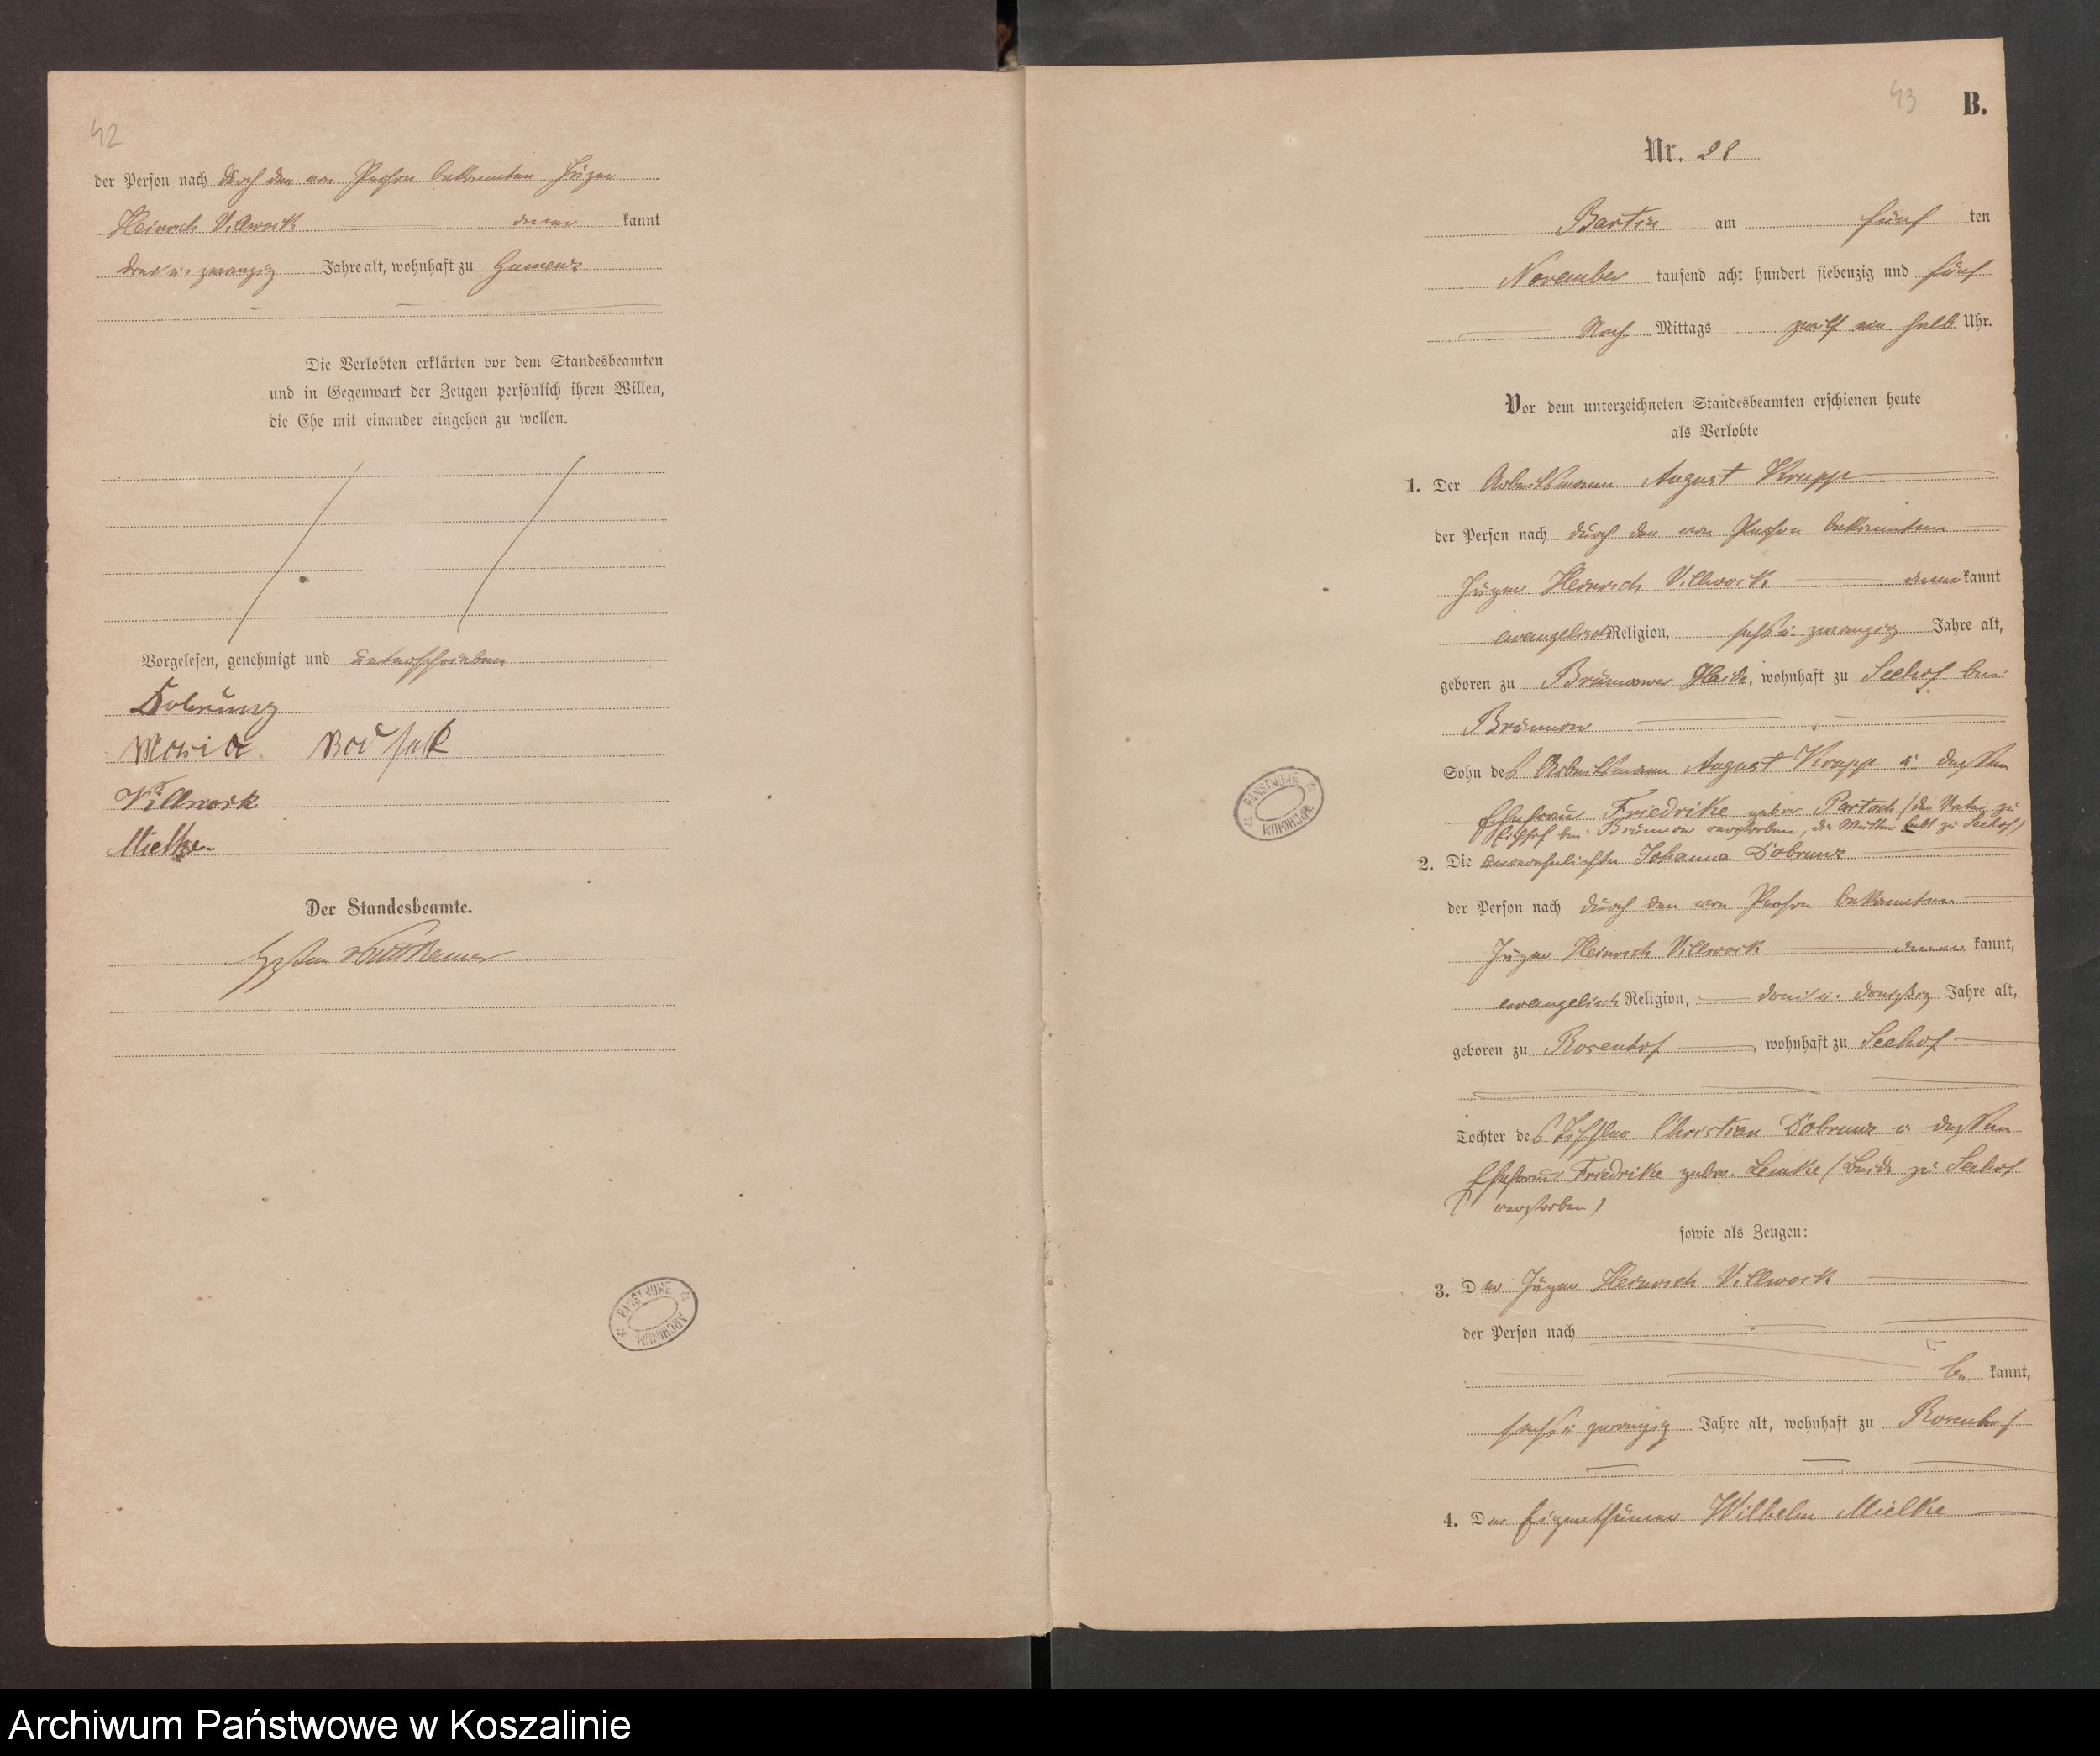 42
der Person nach durch den von Person bekannten Jäger
Heinrich Villwock aner kannt
drei u. zwanzig Jahre alt, wohnhaft zu Gumenz
Die Verlobten erklärten vor dem Standesbeamten
und in Gegenwart der Zeugen persönlich ihren Willen,
die Ehe mit einander eingehen zu wollen.
Vorgelesen, genehmigt und unterschrieben
Maria
Villwock
Mielke
Der Standesbeamte.
43
B.
Nr. 28
Bartin am fünf ten
November tausend acht hundert siebenzig und fünf
Nach Mittags zwölf ein halb Uhr.
Vor dem unterzeichneten Standesbeamten erschienen heute
als Verlobte
1. Der Arbeitsmann August Krupp
der Person nach durch den von Person bekannten
Jäger Heinrich Villwock aner kannt
evangelisch Religion, sechs u. zwanzig Jahre alt,
geboren zu Brünnower Haide, wohnhaft zu Seehof bei
Brünnow
Sohn des Arbeitsmann August Krupp u. dessen
Ehefrau Friedrike gebor. Partoch (der Vater zu
bei Brünnow verstorben, die Mutter lebt zu Seehof)
2. Die unverehelichte Johanna Dobrunz
der Person nach durch den von Person bekannten
Jäger Heinrich Villwock aner kannt,
evangelisch Religion, drei u. dreißig Jahre alt,
geboren zu Rosenhof, wohnhaft zu Seehof
Tochter des Tischler Christian Dobrunz u dessen
Ehefrau Friedrike gebor. Lemke (Beide zu Seehof
verstorben)
sowie als Zeugen:
3. Der Jäger Heinrich Villwock
der Person nach
be kannt,
sechs u zwanzig Jahre alt, wohnhaft zu Rosenhof
4. Der Eigenthümer Wilhelm Mielke
PAŃSTWOWE ARCHIWUM
PAŃSTWOWE ARCHIWUM
Archiwum Państwowe w Koszalinie